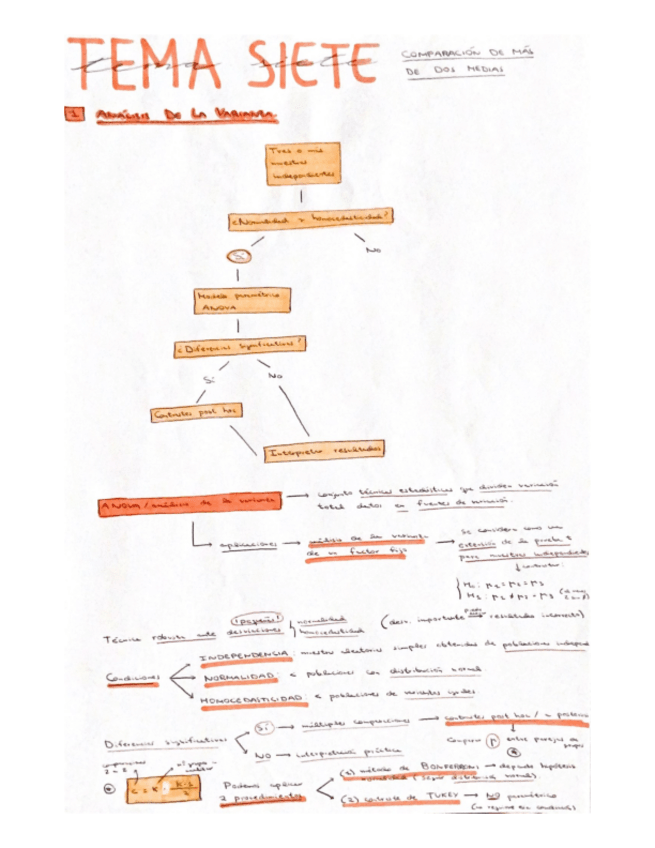 TEMA SIETE
tema siete
COMPARACIÓN DE MÁS
DE DOS MEDIAS
1 ANÁLISIS DE LA VARIANZA
Tres o más
muestras
independientes
¿Normalidad y homocedasticidad?
Sí
No
Modelo paramétrico
ANOVA
¿Diferencias significativas?
Sí
No
Contrastes post hoc
Interpretar resultados
ANOVA / análisis de la varianza → conjunto técnicas estadísticas que dividen variación
total datos en fuentes de variación.
aplicaciones → análisis de la varianza → Se considera como una
de un factor fijo extensión de la prueba t
para muestras independientes
contraste:
H0: μ1 = μ2 = μ3
H1: μ1 ≠ μ2 ≠ μ3
Técnica robusta ante desviaciones
¡pequeñas!
normalidad
homocedasticidad
(desv. importante → resultados incorrectos)
Condiciones
INDEPENDENCIA: muestras aleatorias simples obtenidas de poblaciones independ
NORMALIDAD: poblaciones con distribución normal
HOMOCEDASTICIDAD: poblaciones de varianzas iguales
Diferencias significativas
Sí → múltiples comparaciones → contrastes post hoc / a posteriori
Comparar μ entre parejas de
grupos
NO → interpretación práctica
comparaciones
2 a 2
nº grupos
c = k · k-1
2
Podemos aplicar
2 procedimientos
(1) método de BONFERRONI → depende hipótesis
normalidad (seguir distribución normal).
(2) contraste de TUKEY → NO paramétrico
(no requiere esa condición)